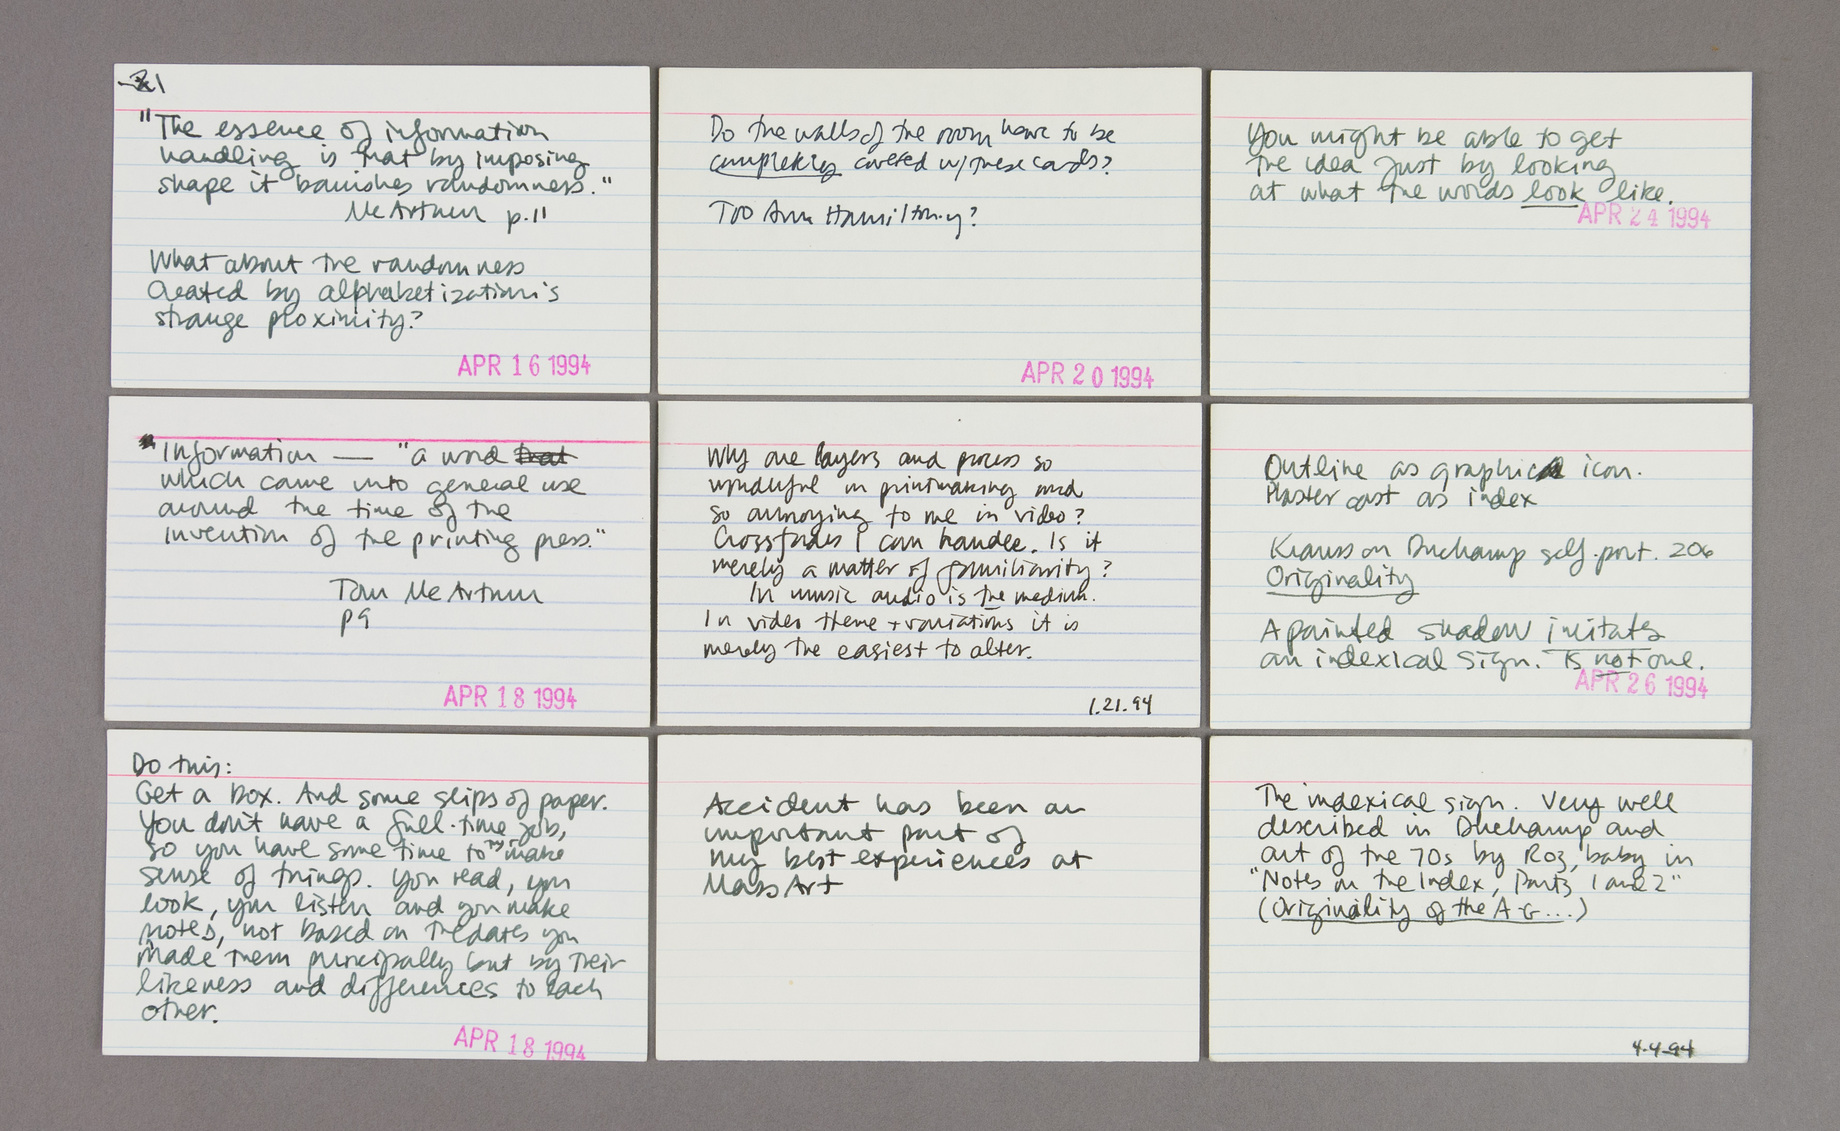 "The essence of information
handling is that by imposing
shape it banishes randomness."
McArthur p.11
What about the randomness
created by alphabetization's
strange proximity?
APR 16 1994
Do the walls of the room have to be
completely covered w/ these cards?
Too Ann Hamilton-y?
APR 20 1994
You might be able to get
the idea just by looking
at what the words look like.
APR 24 1994
Information — "a word that
which came into general use
around the time of the
invention of the printing press."
Tom McArthur
p9
APR 18 1994
Why are layers and process so
wonderful in printmaking and
so annoying to me in video?
Crossfades I can handle. Is it
merely a matter of familiarity?
In music audio is the medium.
In video theme + variations it is
merely the easiest to alter.
1.21.94
Outline as graphic icon.
Plaster cast as index
Krauss on Duchamp self-port. 206
Originality
A painted shadow imitates
an indexical sign. Is not one.
APR 26 1994
Do this:
Get a box. And some slips of paper.
You don't have a full-time job,
so you have some time to try make
sense of things. You read, you
look, you listen and you make
notes, not based on the dates you
made them principally but by their
likeness and differences to each
other.
APR 18 1994
Accident has been an
important part of
my best experiences at
Mass Art
The indexical sign. Very well
described in Duchamp and
art of the 70s by Roz, baby in
"Notes on the Index, Parts 1 and 2"
(Originality of the A-G...)
4.4.94